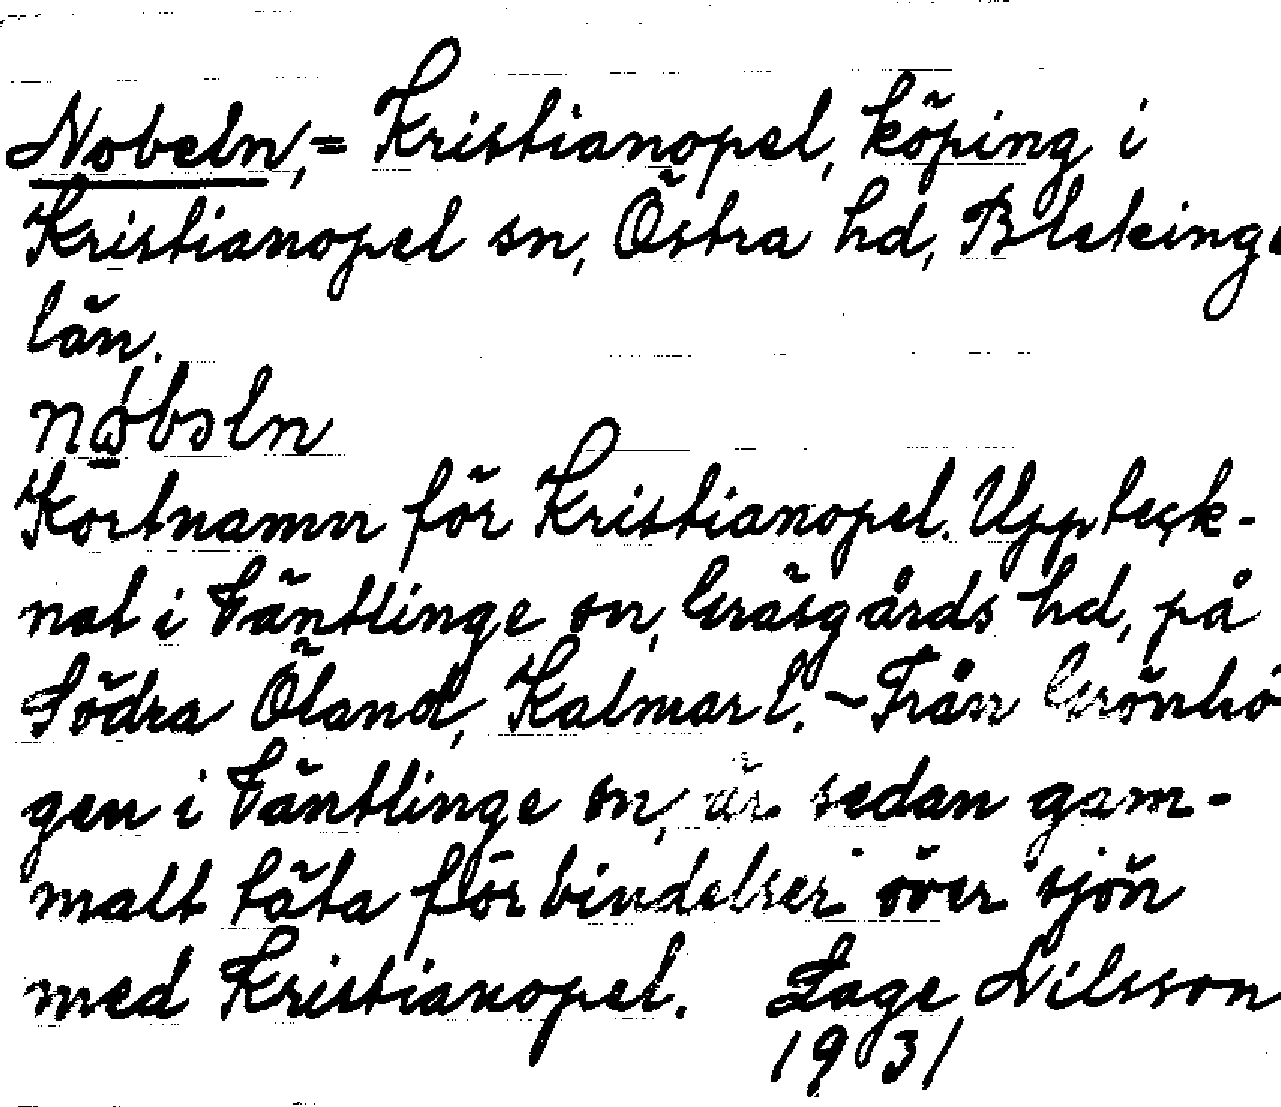 Nobeln, = Kristianopel, köping i
Kristianopel sn, Östra hd, Blekinge
län.
nobəln
Kortnamn för Kristianopel. Uppteck-
nat i Väntlinge sn, Gräsgårds hd, på
Södra Öland, Kalmar l. – Från Grönhö
gen i Väntlinge sn, är sedan gam-
malt täta förbindelser över sjön
med Kristianopel. Lage Nilsson
1931